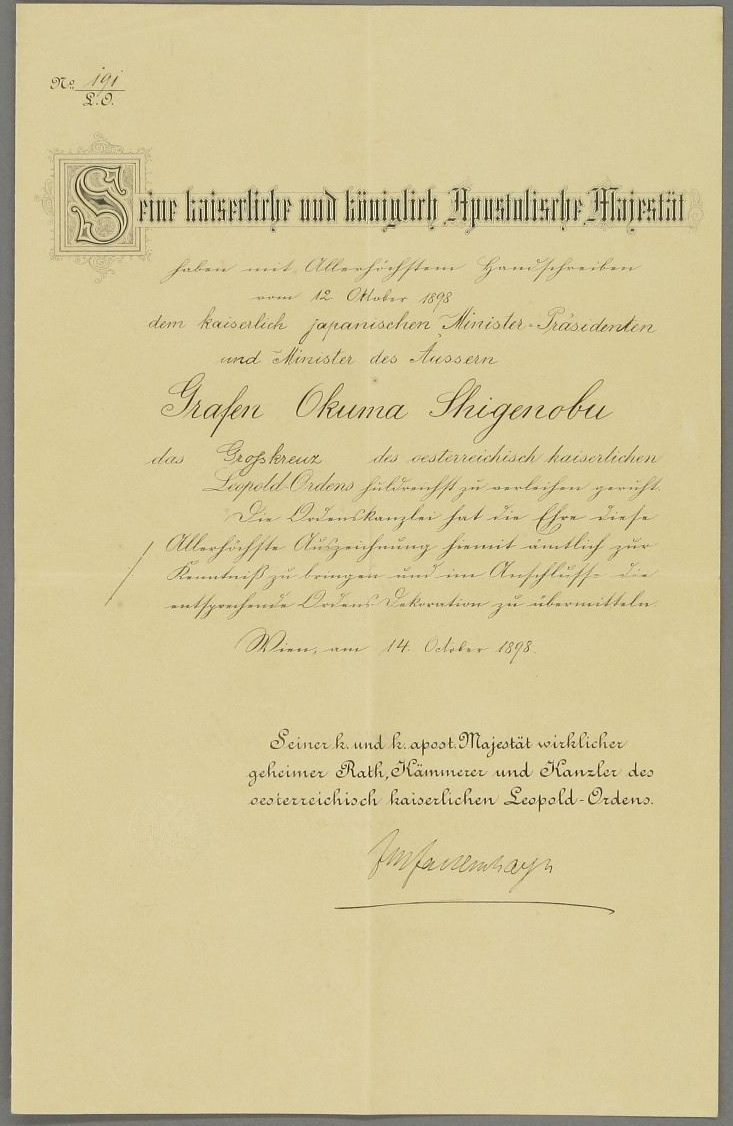 No. 191
L. O.
Seine kaiserliche und königlich Apostolische Majestät
haben mit Allerhöchstem Handschreiben
vom 12. Oktober 1898
dem kaiserlich japanischen Minister-Präsidenten
und Minister des Äussern
Grafen Okuma Shigenobu
das Großkreuz des oesterreichisch kaiserlichen
Leopold-Ordens huldreichst zu verleihen geruht.
Die Ordenskanzlei hat die Ehre diese
Allerhöchste Auszeichnung hiemit ämtlich zur
Kenntniß zu bringen und im Anschlusse die
entsprechende Ordens-Dekoration zu übermitteln.
Wien, am 14. October 1898.
Seiner k. und k. apost. Majestät wirklicher
geheimer Rath, Kämmerer und Kanzler des
oesterreichisch kaiserlichen Leopold-Ordens.